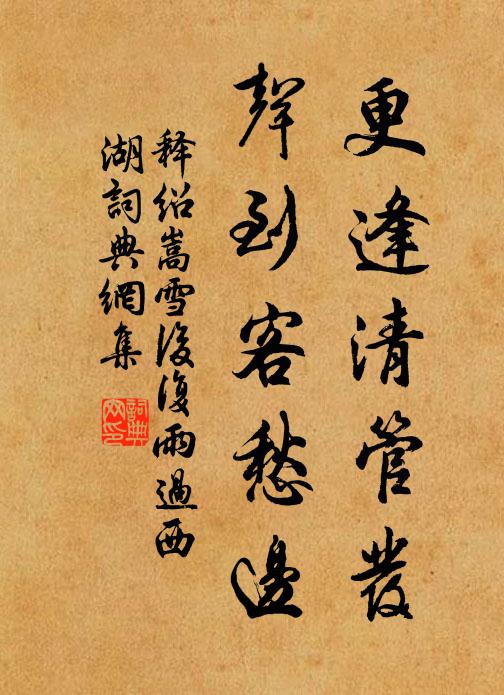 更逢清管發
聲到客愁邊
释紹嵩雪後復雨過西
湖詞典網集
詞典
网印